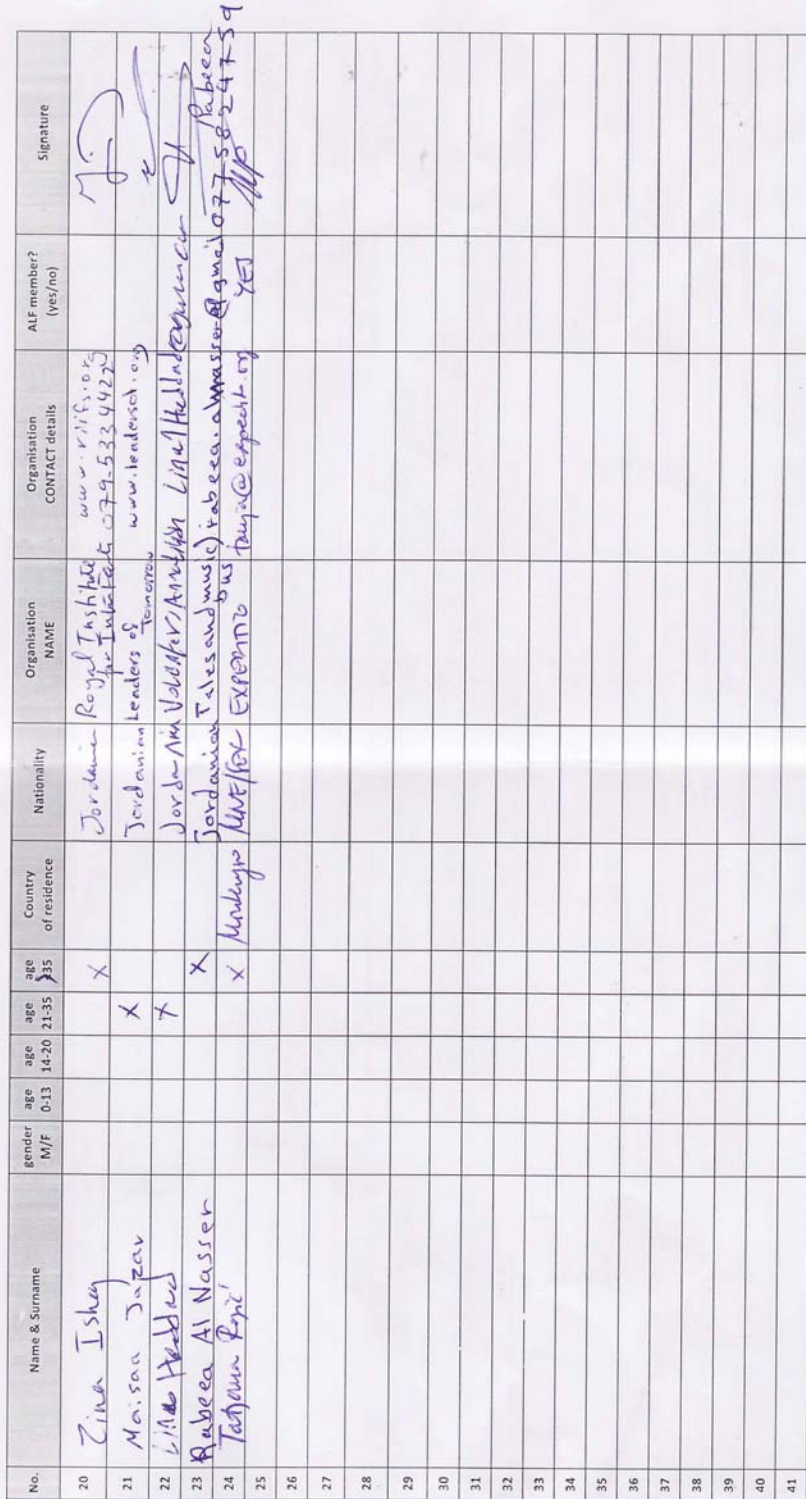 No. Name & Surname gender M/F age 0-13 age 14-20 age 21-35 age >35 Country of residence Nationality Organisation NAME Organisation CONTACT details ALF member? (yes/no) Signature
20 Zina Ishaq X Jordanian Royal Institute for Interfaith www.riifs.org 079-5334422
21 Maisaa Jazar X Jordanian Leaders of Tomorrow www.leadersot.org
22 Lina Haddad X Jordanian
23 Rabeea Al Nasser X Jordanian Tales and music) rabeea.alnasser@gmail 0775824759 Rabeea
24 Tatjana Rajić X MNE/ EXPEDITIO bus tanja@expeditio.org YES
25
26
27
28
29
30
31
32
33
34
35
36
37
38
39
40
41